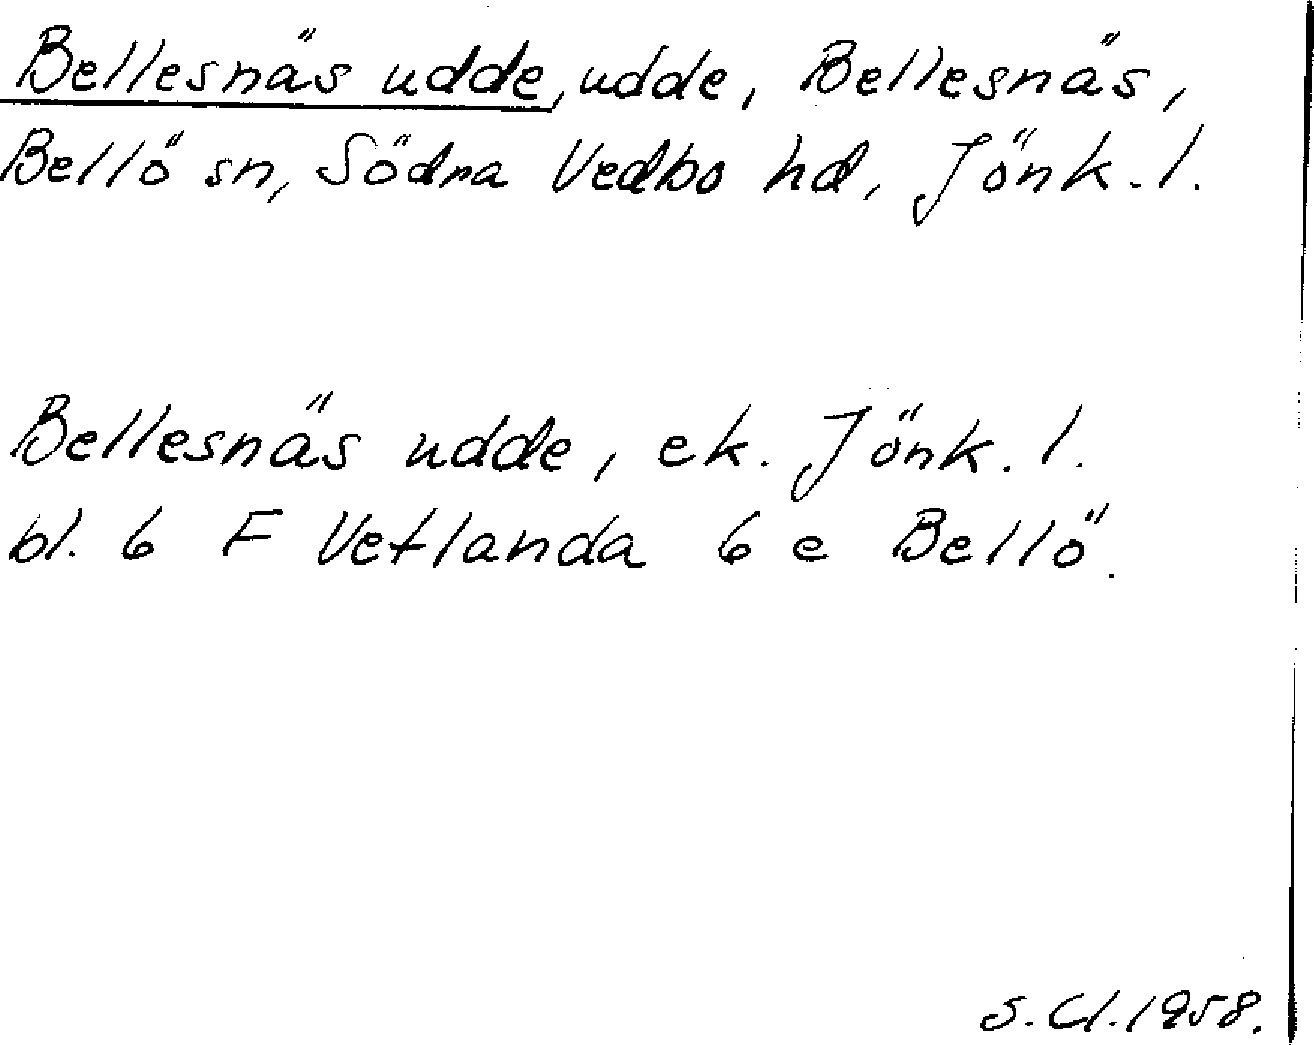 Bellesnäs udde, udde, Bellesnäs,
Bellö sn, Södra Vedbo hd, Jönk. l.
Bellesnäs udde, ek. Jönk. l.
bl. 6 F Vetlanda 6 e Bellö.
S. Cl. 1958.